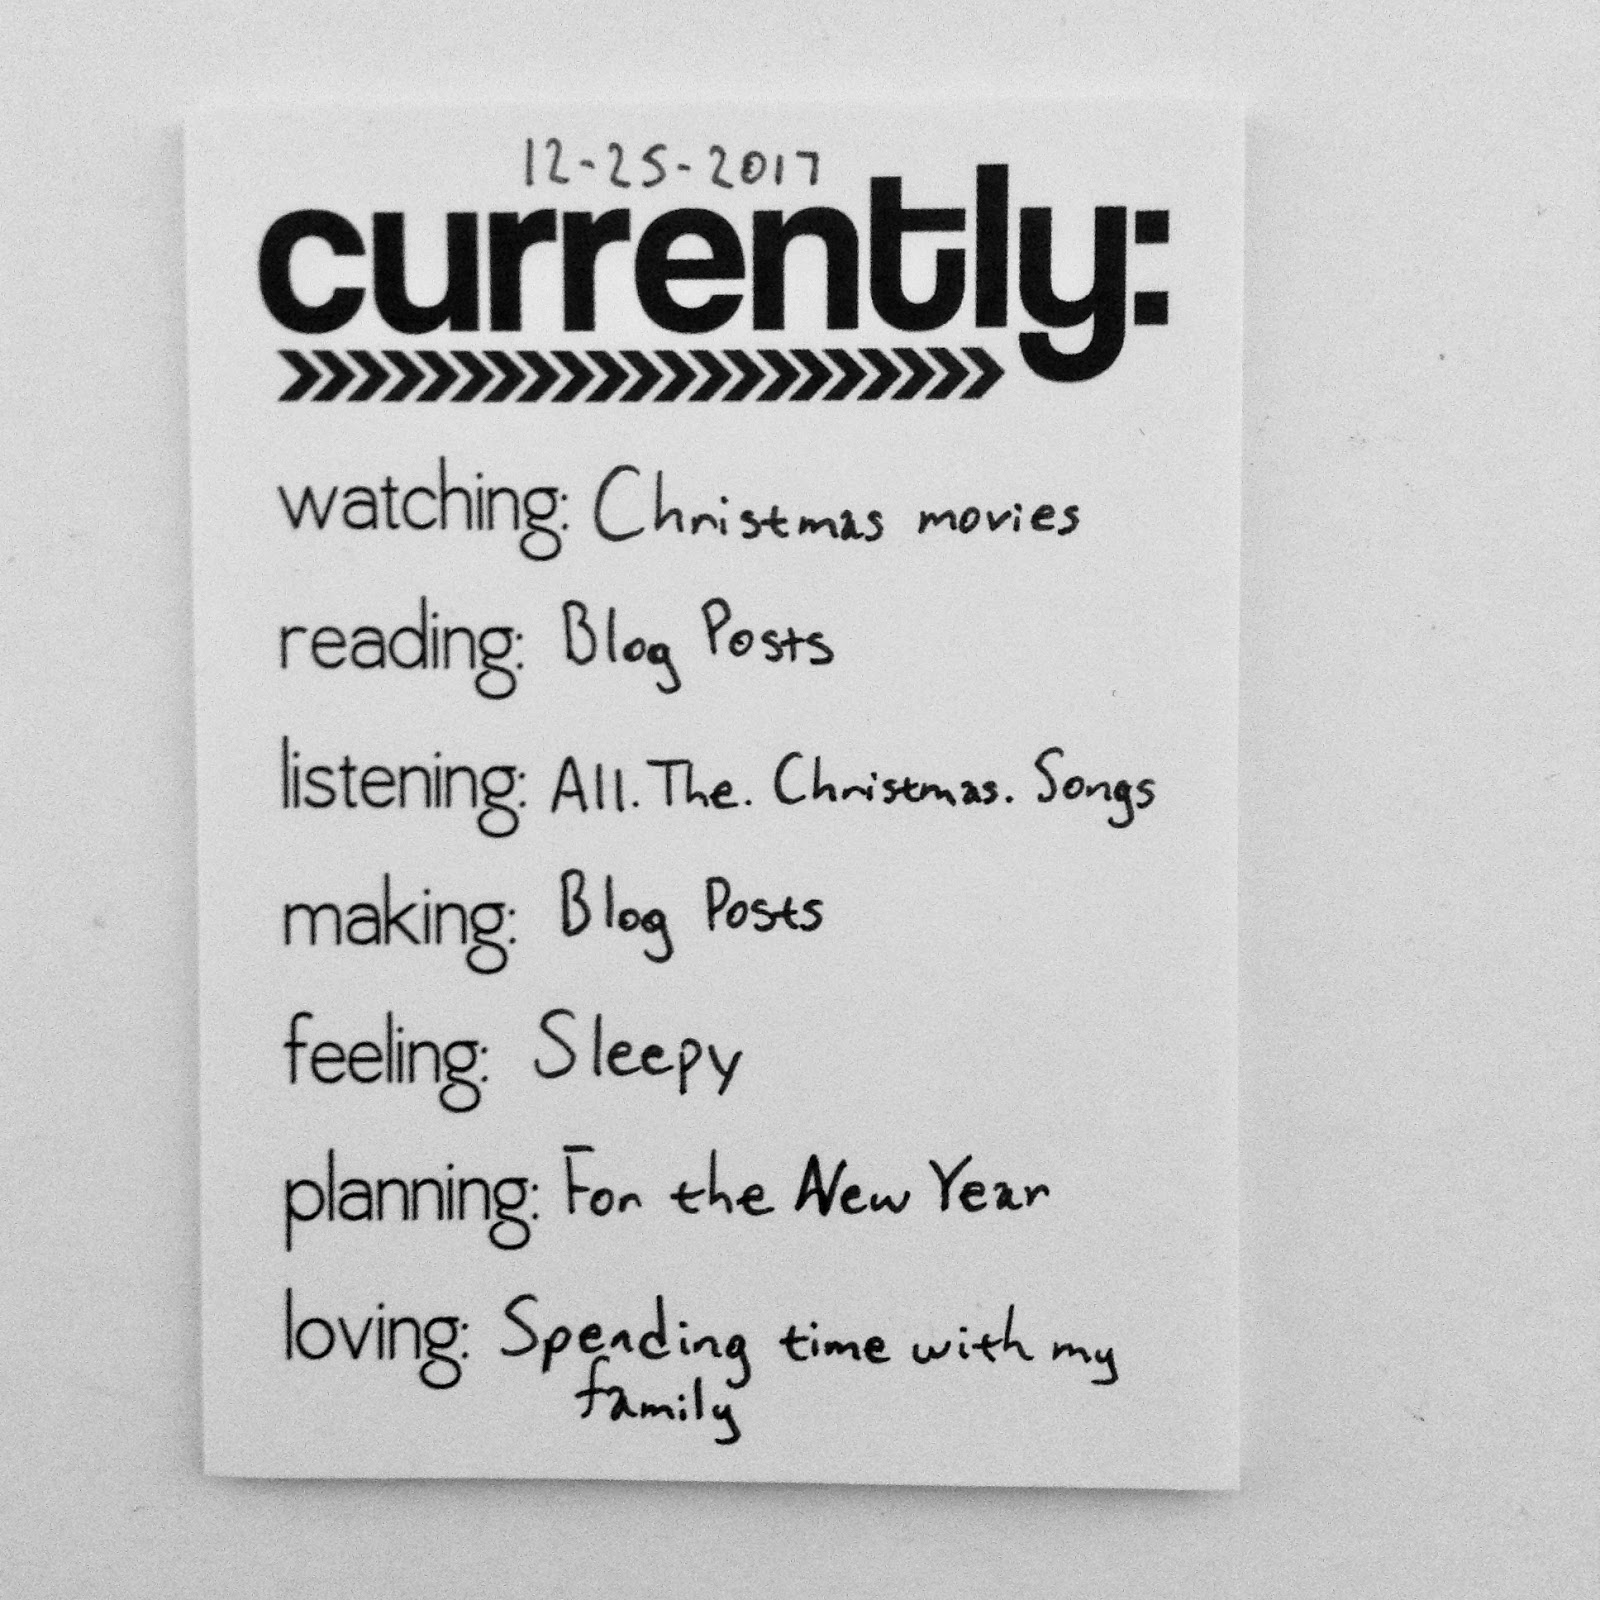 12-25-2017
currently:
watching: Christmas movies
reading: Blog Posts
listening: All. The. Christmas. Songs
making: Blog Posts
feeling: Sleepy
planning: For the New Year
loving: Spending time with my
family